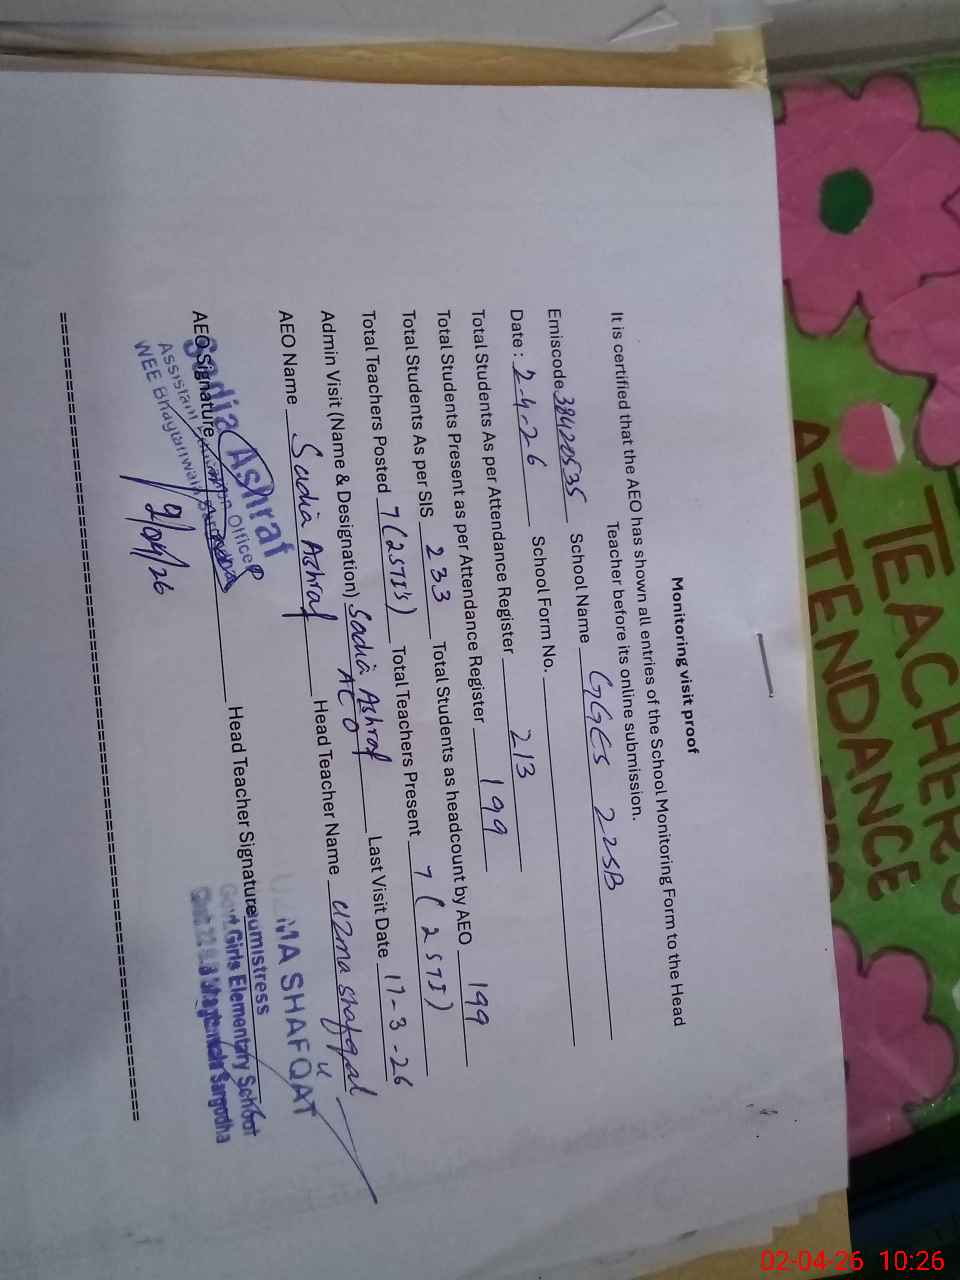 Monitoring visit proof
It is certified that the AEO has shown all entries of the School Monitoring Form to the Head
Teacher before its online submission.
Emiscode 38420535 School Name GGES 22SB
Date : 2-4-26 School Form No.
Total Students As per Attendance Register 213
Total Students Present as per Attendance Register 199
Total Students As per SIS 233 Total Students as headcount by AEO 199
Total Teachers Posted 7 (2STI's) Total Teachers Present 7 (2 STI)
Admin Visit (Name & Designation) Sadia Ashraf AEO Last Visit Date 17-3-26
AEO Name Sadia Ashraf Head Teacher Name Uzma Shafqat
AEO Signature Head Teacher Signature
Sadia Ashraf
Assistant Education Officer
WEE Bhagtanwala
2/04/26
UZMA SHAFQAT
Govt Girls Elementary School
Chak 22 S.B Bhagtanwala Sargodha
TEACHERS
ATTENDANCE
02-04-26 10:26